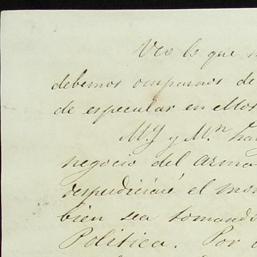 Veo lo que
debemos ocuparnos de
de especular en Mos
M.y y M.n ha
negocio del arma
desperdiciaré el mo
bien sea tomando
Política. Por